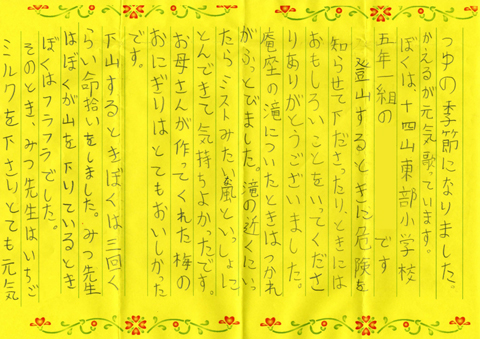 つゆの季節になりました。
かえるが元気歌っています。
ぼくは、十四山東部小学校
五年一組の です
登山するときに危険を
知らせて下ださったり、ときには
おもしろいことをいってくださ
りありがとうございました。
庵座の滝についたときはつかれ
がふっとびました。滝の近くにいっ
たらミストみたい嵐といっしょに
とんできて気持ちよかったです。
お母さんが作ってくれた梅の
おにぎりはとてもおいしかった
です。
下山するときぼくは三回く
らい命拾いをしました。みつ先生
はぼくが山を下りているとき
ぼくはフラフラでした。
そのとき、みつ先生はいちご
ミルクを下さりとても元気